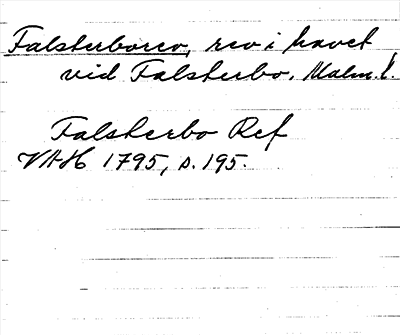 Falsterborev, rev i havet
vid Falsterbo, Malm. l.
Falsterbo Ref
VAH 1795, s. 195.